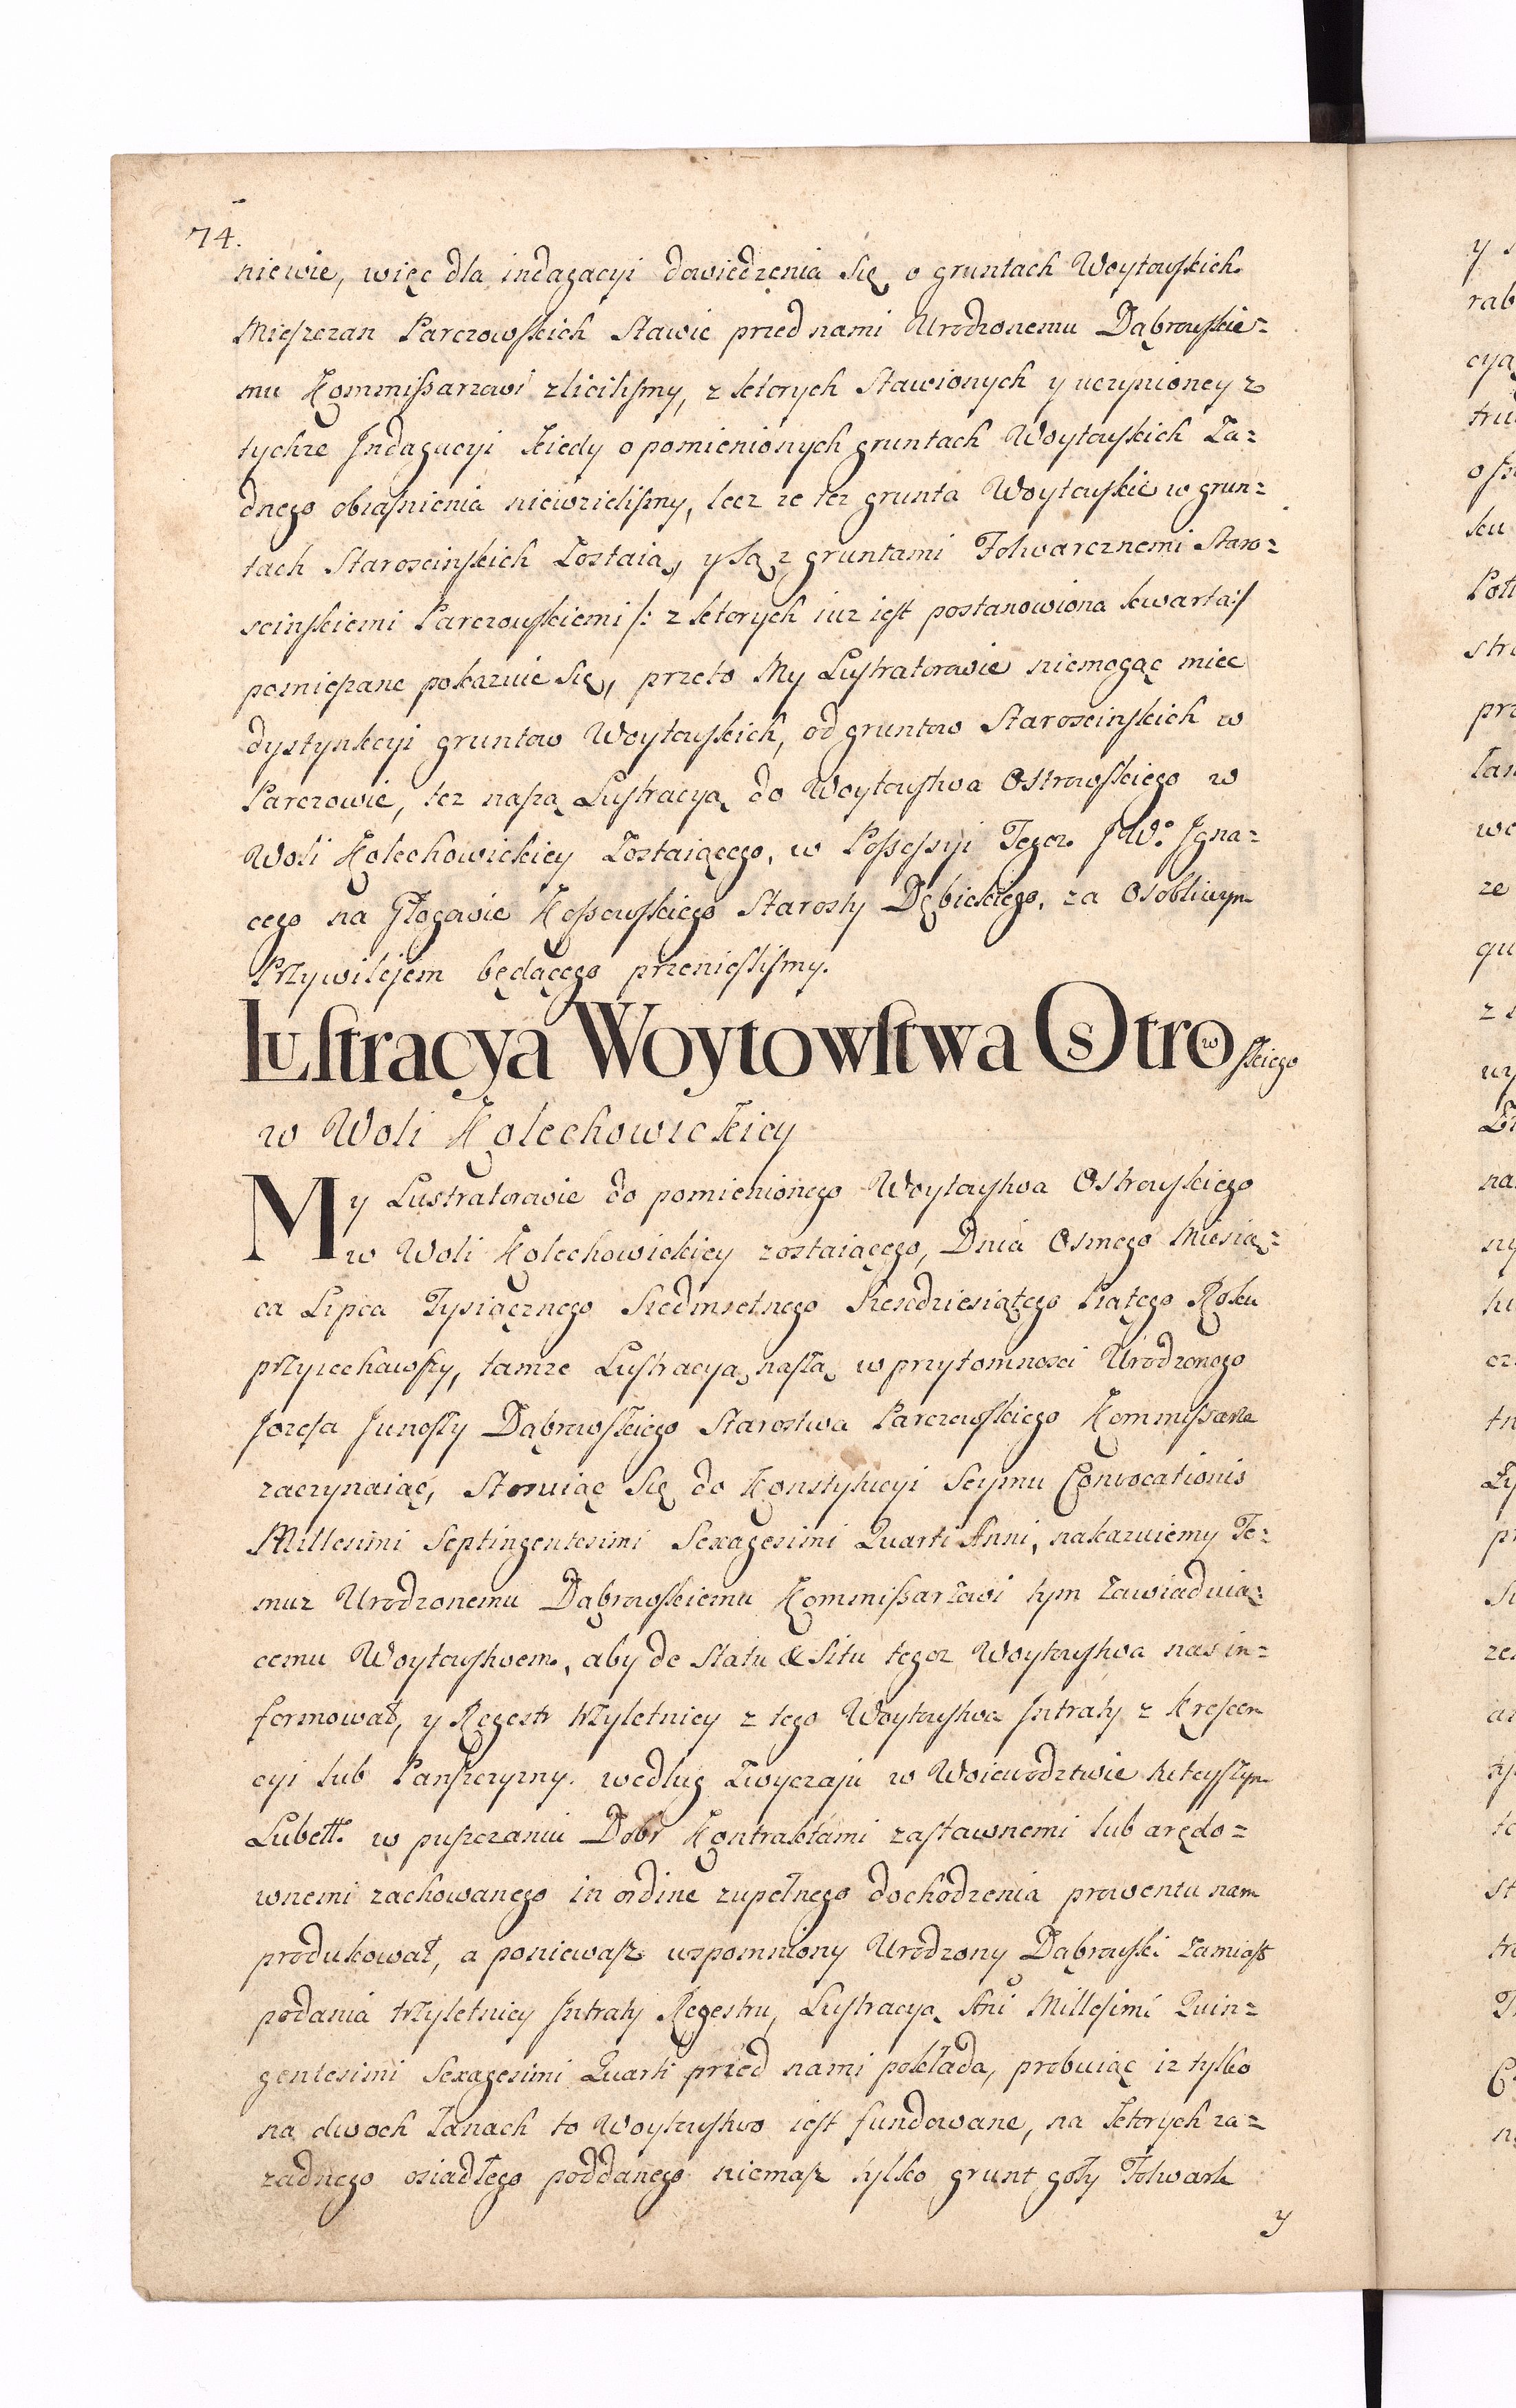 74.
niewie, więc dla indagacyi dowiedzenia się o gruntach Woytowskich
Mieszczan Parczowskich Stawić przed nami Urodzonemu Dąbrowskie=
mu Kommissarzowi zliciliśmy, z ktorych Stawionych y uczynioney z
tychże Indagacyi kiedy o pomienionych gruntach Woytowskich Ża=
dnego obiaśnienia niewzieliśmy, lecz że też grunta Woytowskie w grun=
tach Starościnskich Zostaią, y Są z gruntami Folwarcznemi Staro=
scinskiemi Parczowskiemi /: z ktorych iuż iest postanowiona kwarta:/
pomieszane pokazuie się, przeto My Lustratorowie niemogąc miec
dystynkcyi gruntow Woytowskich, od gruntow Starościnskich w
Parczowie, też naszą Lustracyą do Woytowstwa Ostrowskiego w
Woli Kolechowickiey Zostaiącego, w Possessyi Tegoż JW.º Igna=
cego na Głogowie Kossowskiego Starosty Dębickiego, za Osobliwym
Przywilejem będącego przenieśliśmy.
Lustracya Woytowstwa Ostrowskiego
w Woli Kolechowickiey
My Lustratorowie do pomienionego Woytowstwa Ostrowskiego
w Woli Kolechowickiey zostaiącego, Dnia Osmego Miesią=
ca Lipca Tysiącznego Siedmsetnego Sześdziesiątego Piątego Roku
przyiechawszy, tamże Lustracyą naszą w przytomności Urodzonego
Jozefa Junoszy Dąbrowskiego Starostwa Parczowskiego Kommissarza
zaczynaiąc, Stosuiąc Się do Konstytucyi Seymu Convocationis
Millesimi Septingentesimi Sexagesimi Quarti Anni, nakazuiemy Te=
muż Urodzonemu Dąbrowskiemu Kommissarzowi tym Zawiaduią=
cemu Woytowstwem, aby de Statu & Situ tegoż Woytowstwa nas in=
formował, y Regestr trzyletniey z tego Woytowstwa Intraty z Krescen
cyi lub Panszczyzny według Zwyczaju w Woiewodztwie tuteyszym
Lubell. w puszczaniu Dobr Kontraktami zastawnemi lub arędo=
wnemi zachowanego in ordine zupełnego dochodzenia prowentu nam
produkował, a poniewasz wspomniony Urodzony Dąbrowski Zamiast
podania trzyletniey Intraty Regestru, Lustracyą Ani Millesimi Quin=
gentesimi Sexagesimi Quarti przed nami pokłada, probuiąc iż tylko
na dwoch Łanach to Woytowstwo iest fundowane, na ktorych za=
żadnego osiadłego poddanego niemasz tylko grunt goły Folwark
y